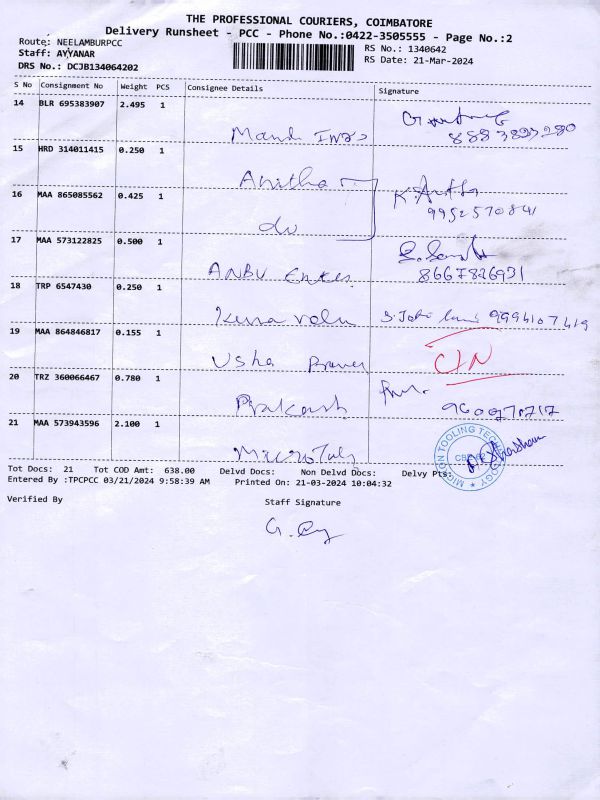 THE PROFESSIONAL COURIERS, COIMBATORE
Delivery Runsheet - PCC - Phone No.:0422-3505555 - Page No.:2
Route: NEELAMBURPCC
RS No.: 1340642
Staff: AYYANAR
RS Date: 21-Mar-2024
DRS No.: DCJB134064202
S No Consignment No Weight PCS Consignee Details Signature
14 BLR 695383907 2.495 1
15 HRD 314011415 0.250 1 Anitha
16 MAA 865085562 0.425 1 do
9952570841
17 MAA 573122825 0.500 1 ANBU
8667826931
18 TRP 6547430 0.250 1 9994107419
19 MAA 864846817 0.155 1 Usha
20 TRZ 360066467 0.780 1 Prakash
21 MAA 573943596 2.100 1
MICRON TOOLING TECHNOLOGY
Tot Docs: 21 Tot COD Amt: 638.00 Delvd Docs: Non Delvd Docs: Delvy Pts:
Entered By :TPCPCC 03/21/2024 9:58:39 AM Printed On: 21-03-2024 10:04:32
Verified By Staff Signature